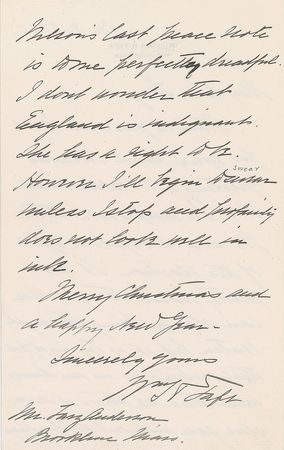 Wilson's last peace note
is to me perfectly dreadful.
I dont wonder that
England is indignant.
She has a right to be.
However I'll begin to swear
swear
unless I stop and profanity
does not look well in
ink.
Merry Christmas and
a happy New Year -
Sincerely yours
Wm H Taft
Mr. Larz Anderson
Brookline Mass.